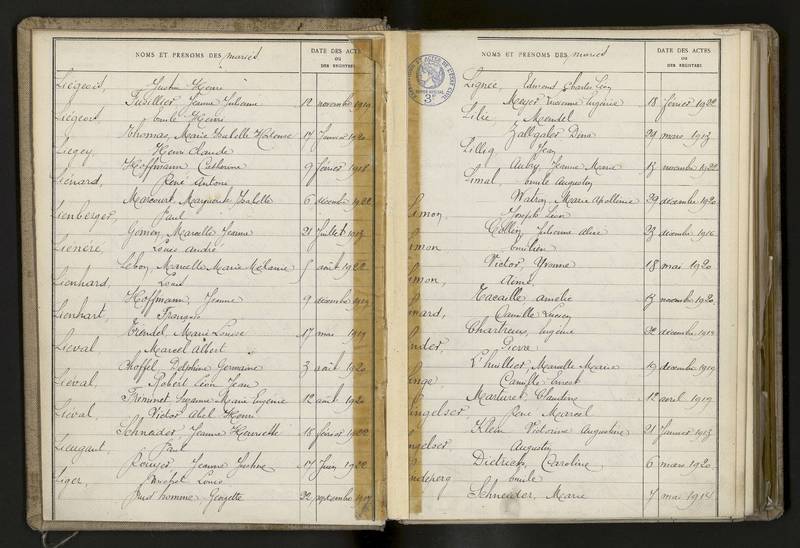 NOMS ET PRÉNOMS DES mariés
DATE DES ACTES
OU
DES REGISTRES
Liégeois, Justin Henri
Fuvillier Jeanne Juliane 12 novembre 1919
Liégeois, Emile Henri
Thomas, Marie Isabelle Hortense 17 Janvier 1920
Liegey, Henri Claude
Hoffmann, Catherine 9 février 1918
Liénard, René Antoine
Marcourt, Marguerite Isabelle 6 décembre 1922
Lienberger, Paul
Gomon, Marcelle Jeanne 21 Juillet 1913
Liénéré, Louis André
Lebon, Marcelle Marie Mélanie 5 août 1922
Lienhard, Louis
Hoffmann, Jeanne 9 décembre 1919
Lienhart, François
Tréndel, Marie Louise 17 mai 1919
Lieval, Marcel Albert
Choffel Delphine Germaine 3 août 1920
Liéval, Robert Léon Jean
Frominet Suzanne Marie Eugénie 12 août 1920
Liéval, Victor Abel Henri
Schneider Jeanne Henriette 18 février 1922
Lieugaut, Paul
Rouyer Jeanne Justine 17 Juin 1922
Liger, Louis
Prud'homme Georgette 22 septembre 1917
NOMS ET PRÉNOMS DES mariés
DATE DES ACTES
OU
DES REGISTRES
3F
Lignee, Edmond Charles Léon
Meyer Eugénie 18 février 1922
Lilie, Mendel
Zalbgaler Dina 29 mars 1913
Lillig Jean
Aubry, Jeanne Marie 13 novembre 1922
Limal, Emile Augustin
Watrin, Marie Apolline 29 décembre 1920
imon, Joseph Léon
Collin, Julienne Alice 23 décembre 1916
imon Emilien
Victor, Yvonne 18 mai 1920
imon, Aimé,
Tacaille Amelie 13 novembre 1920
nard, Camille Lucien
Chartreux, Eugénie 22 décembre 1919
nder, Pierre
L'huillier, Marcelle Marie 19 décembre 1919
inge, Camille Ernest
Marturet Claudine 12 avril 1919
ingelser, René Marcel
Klein Victorine Augustine 21 Janvier 1913
ngelser, Augustin
Dietrich, Caroline 6 mars 1920
ndeperg Emile
Schneider, Marie 7 mai 1914